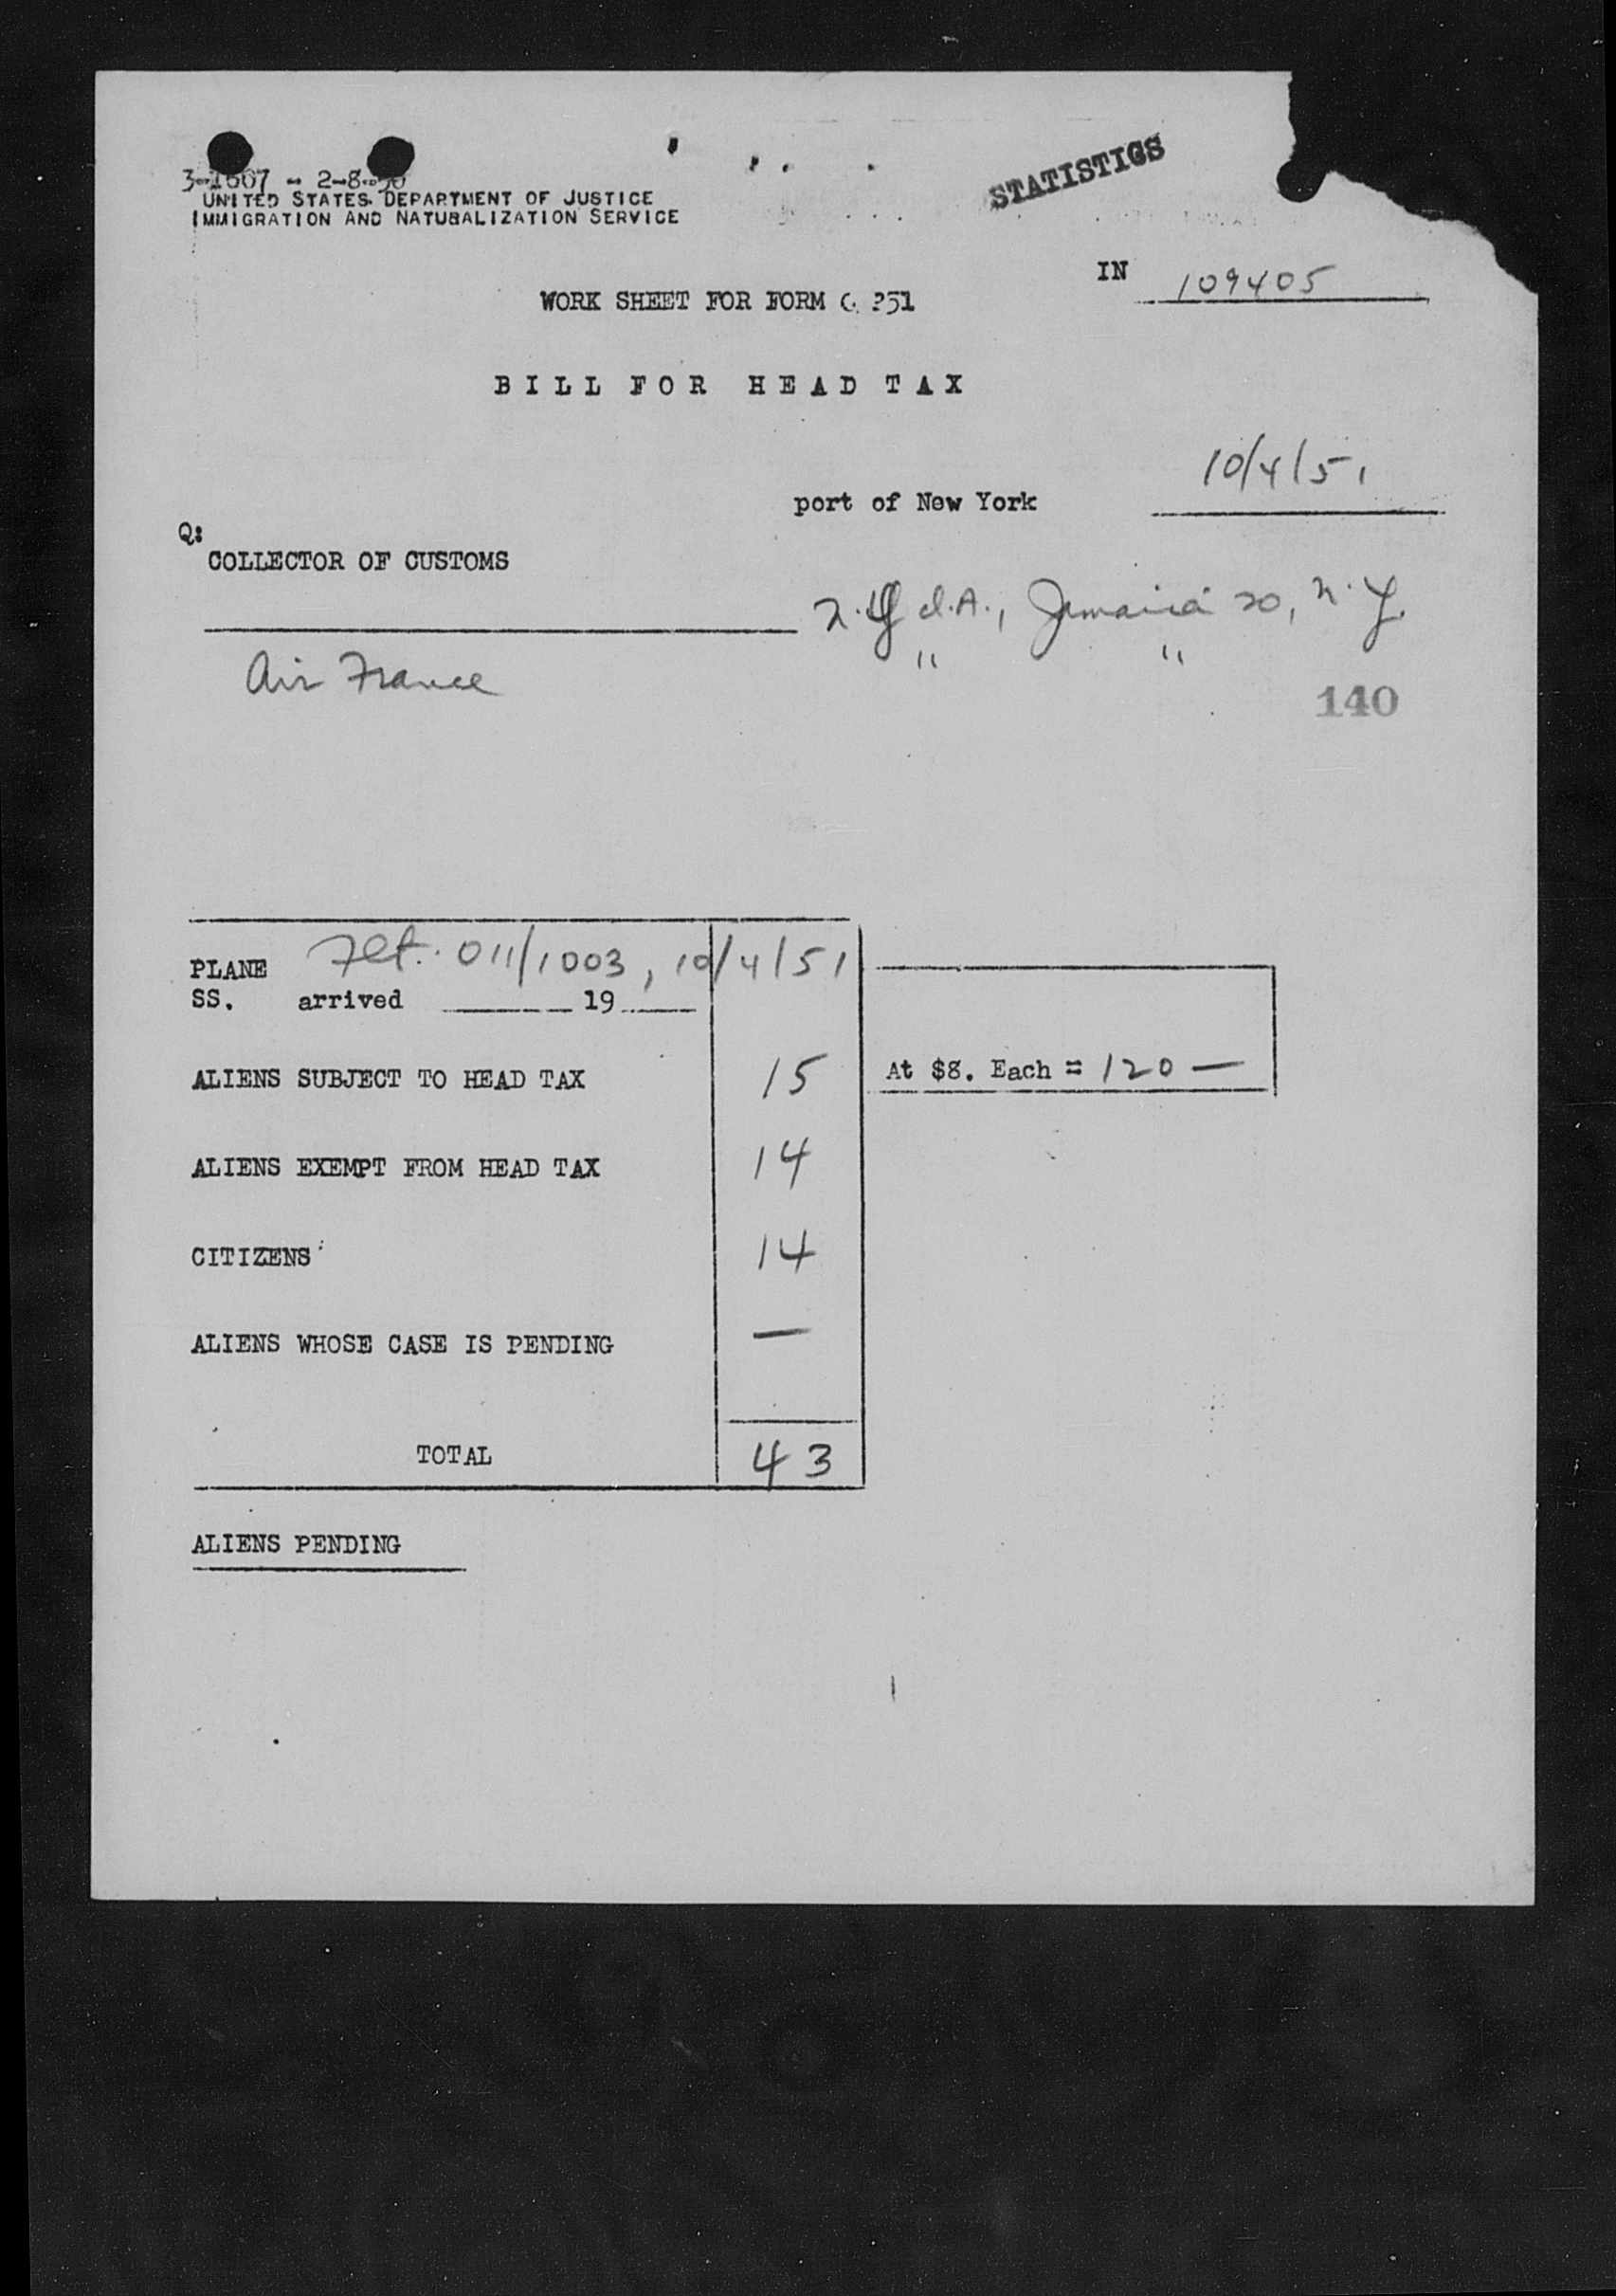 STATISTICS
3-1607 - 2-8-50
UNITED STATES DEPARTMENT OF JUSTICE
IMMIGRATION AND NATURALIZATION SERVICE
IN 109405
WORK SHEET FOR FORM 251
BILL FOR HEAD TAX
10/4/51
port of New York
Q:
COLLECTOR OF CUSTOMS
N.Y.I.A., Jamaica 20, N.Y.
Air France " "
140
PLANE Flt. 011/1003, 10/4/51
SS. arrived 19
ALIENS SUBJECT TO HEAD TAX 15 At $8. Each = 120 —
ALIENS EXEMPT FROM HEAD TAX 14
CITIZENS 14
ALIENS WHOSE CASE IS PENDING —
TOTAL 43
ALIENS PENDING